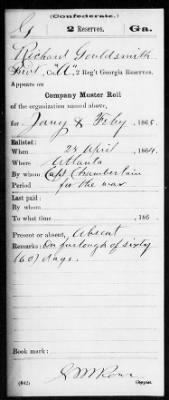 (Confederate.)
G 2 Reserves. Ga.
Richard Gouldsmith
Pvt, Co. "A", 2 Reg't Georgia Reserves.
Appears on
Company Muster Roll
of the organization named above,
for Jany & Feby, 1865.
Enlisted:
When 24 April, 1864.
Where Atlanta
By whom Capt Chamberlain
Period for the war
Last paid:
By whom
To what time , 186 .
Present or absent, Absent
Remarks: On furlough of sixty
(60) days.
Book mark:
(642) Copyist.